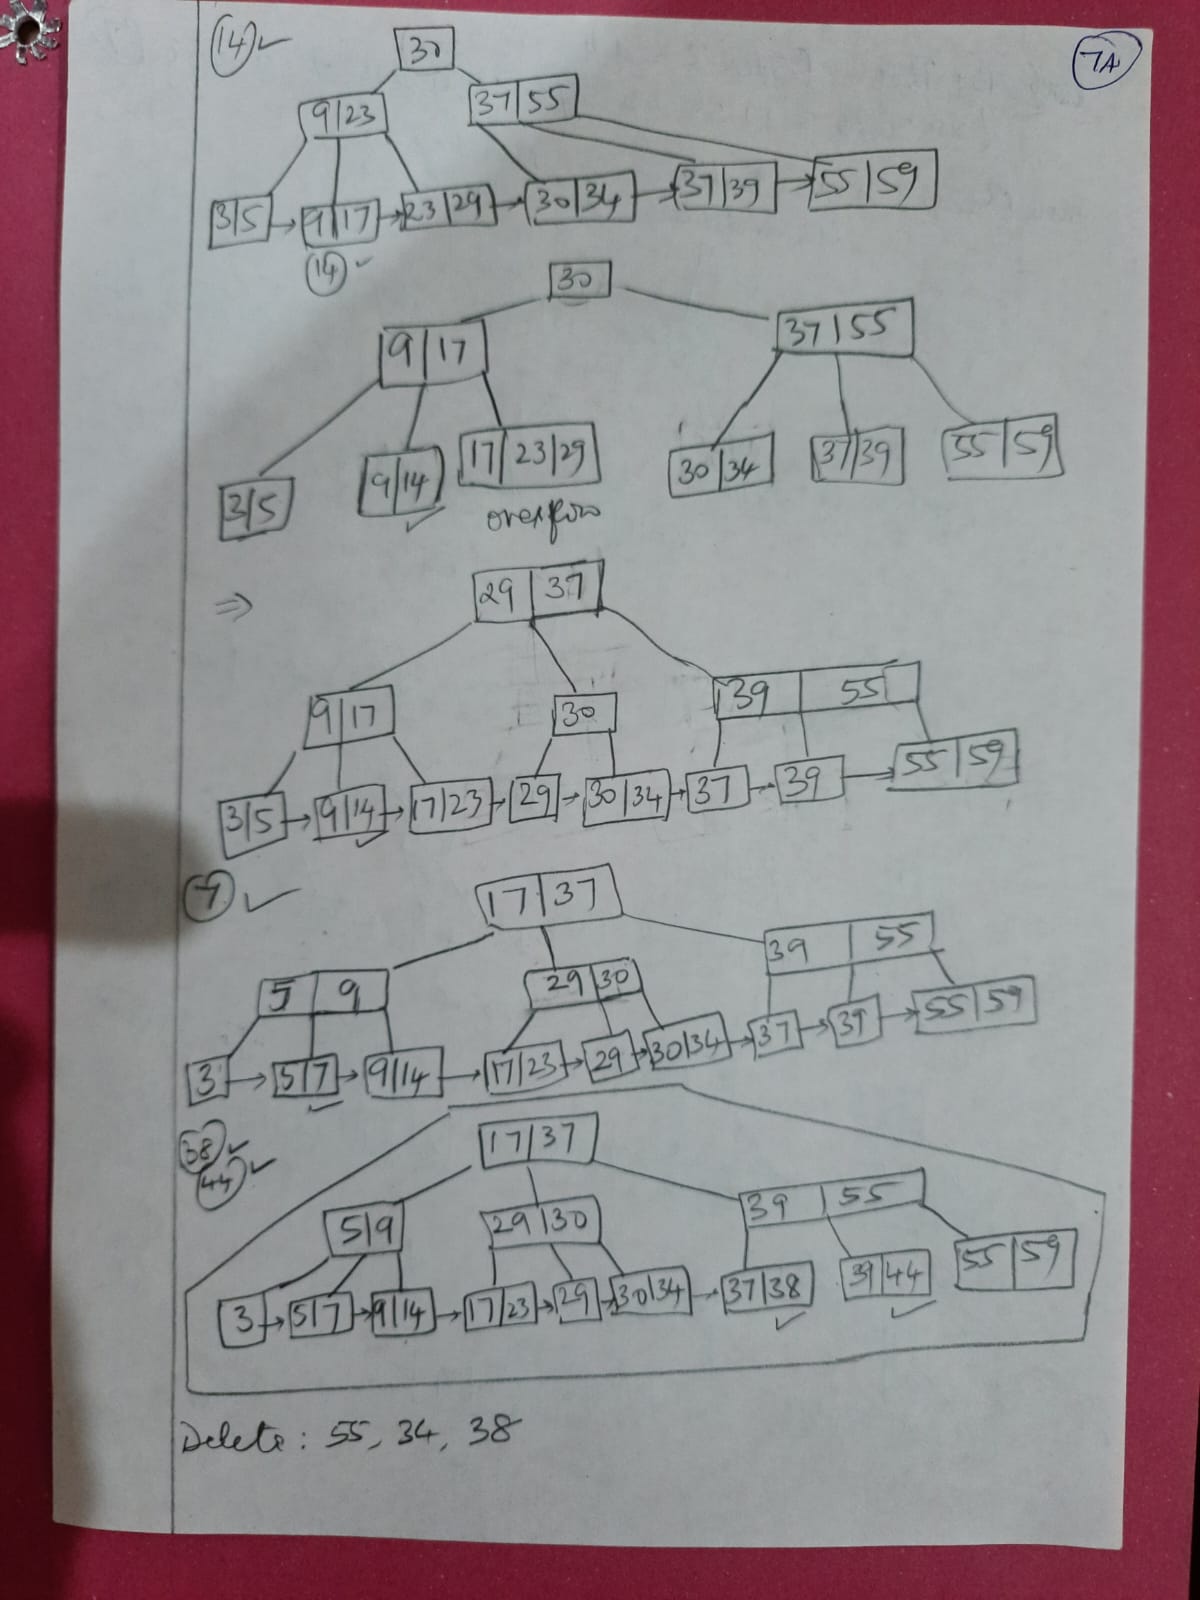 14 ✓ 30 7A
9|23 37|55
3|5 → 9|17 → 23|29 → 30|34 → 37|39 → 55|59
14 ✓
30
9|17 37|55
3|5 9|14 ✓ 17|23|29 30|34 37|39 55|59
overflow
⇒ 29|37
9|17 30 39|55
3|5 → 9|14 ✓ → 17|23 → 29 → 30|34 → 37 → 39 → 55|59
7 ✓ 17|37
5|9 29|30 39|55
3 → 5|7 ✓ → 9|14 → 17|23 → 29 → 30|34 → 37 → 39 → 55|59
38 ✓ 17|37
44 ✓
5|9 29|30 39|55
3 → 5|7 → 9|14 → 17|23 → 29 → 30|34 → 37|38 ✓ 39|44 ✓ 55|59
Delete : 55, 34, 38